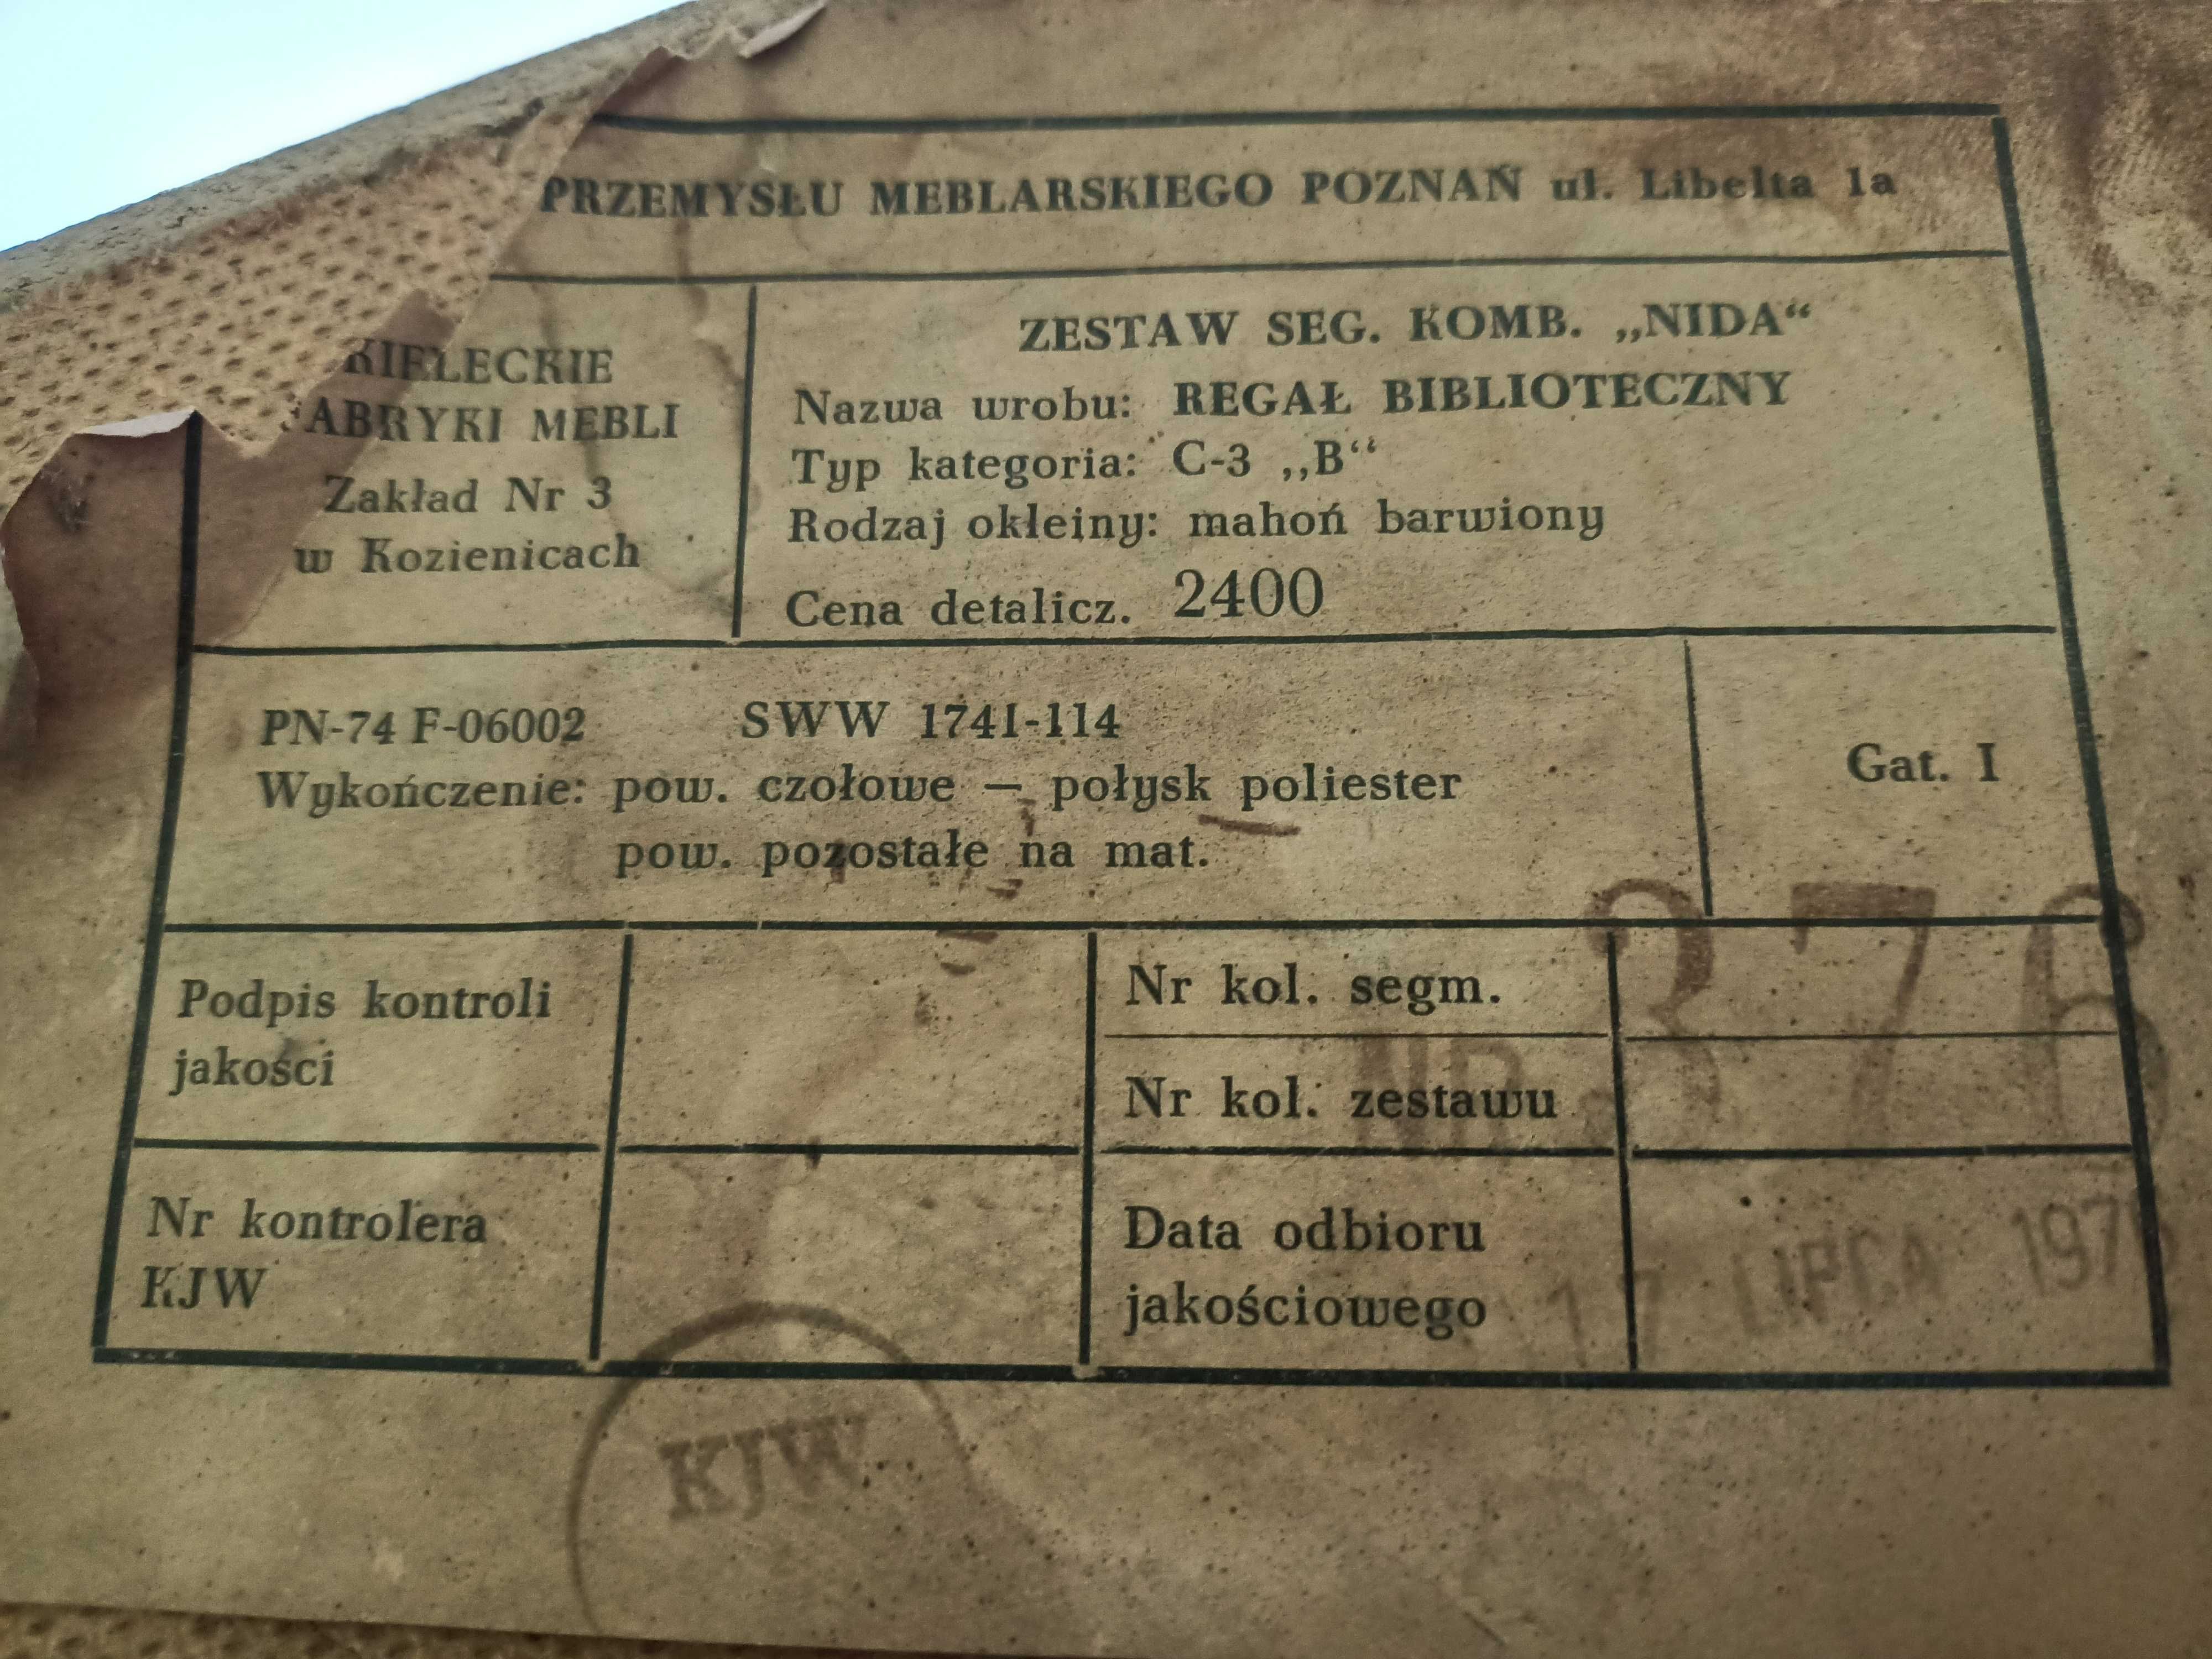 PRZEMYSŁU MEBLARSKIEGO POZNAŃ ul. Libelta 1a
KIELECKIE
FABRYKI MEBLI
Zakład Nr 3
w Kozienicach
ZESTAW SEG. KOMB. „NIDA“
Nazwa wrobu: REGAŁ BIBLIOTECZNY
Typ kategoria: C-3 „B“
Rodzaj okleiny: mahoń barwiony
Cena detalicz. 2400
PN-74 F-06002 SWW 1741-114
Wykończenie: pow. czołowe — połysk poliester
pow. pozostałe na mat.
Gat. I
Podpis kontroli
jakości
Nr kontrolera
KJW
Nr kol. segm.
Nr kol. zestawu
NR 376
Data odbioru
jakościowego
17 LIPCA 1976
KJW